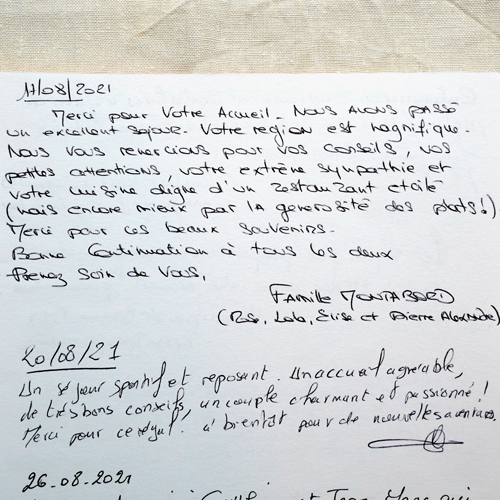 17/08/2021
Merci pour Votre Accueil. Nous avons passé
un excellent séjour. Votre region est magnifique.
Nous vous remercions pour vos conseils, vos
petites attentions, votre extrême sympathie et
votre cuisine digne d'un restaurant etoilé
(mais encore mieux par la generosité des plats!)
Merci pour ces beaux souvenirs.
Bonne Continuation à tous les deux
Prenez soin de vous,
Famille
Lola, Elise et Pierre Alexandre)
20/08/21
Un séjour sportif et reposant. Un accueil agréable,
de très bons conseils, un couple charmant et passionné!
Merci pour ce régal. à bientôt pour de nouvelles aventures.
26.08.2021
et